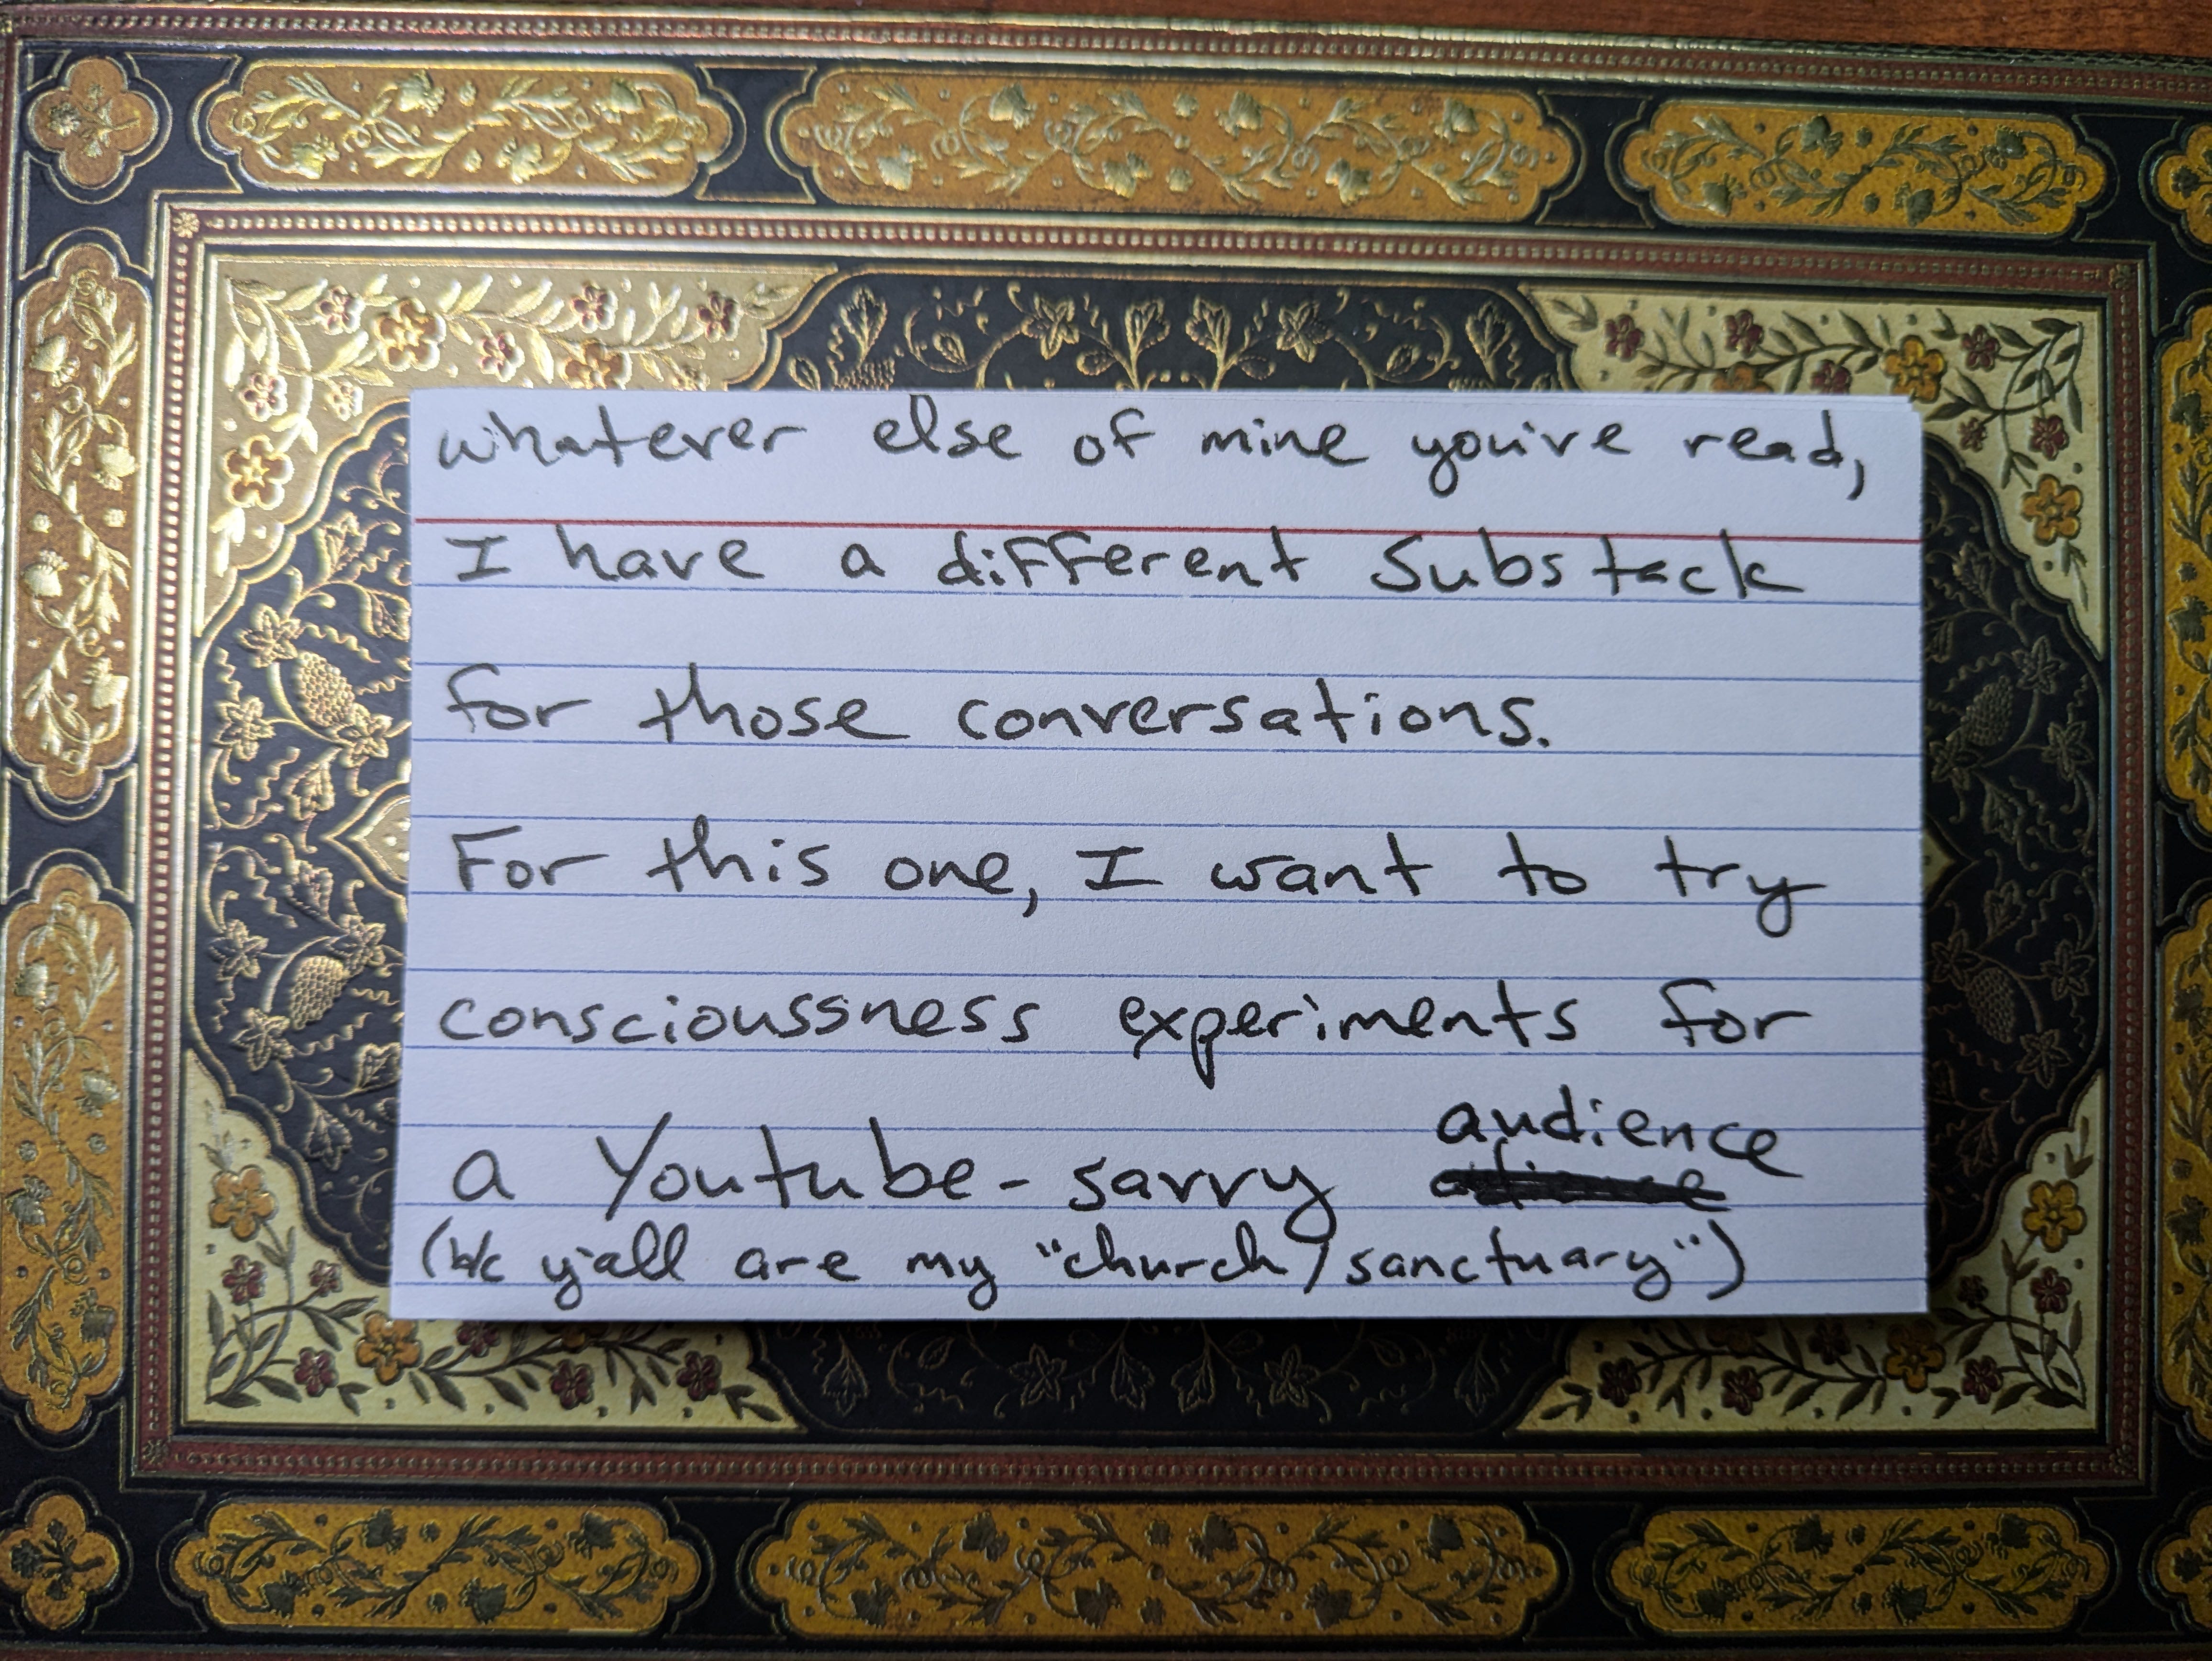 whatever else of mine you've read,
I have a different Substack
for those conversations.
For this one, I want to try
conscioussness experiments for
a Youtube-savvy audience
(b/c y'all are my "church/sanctuary")